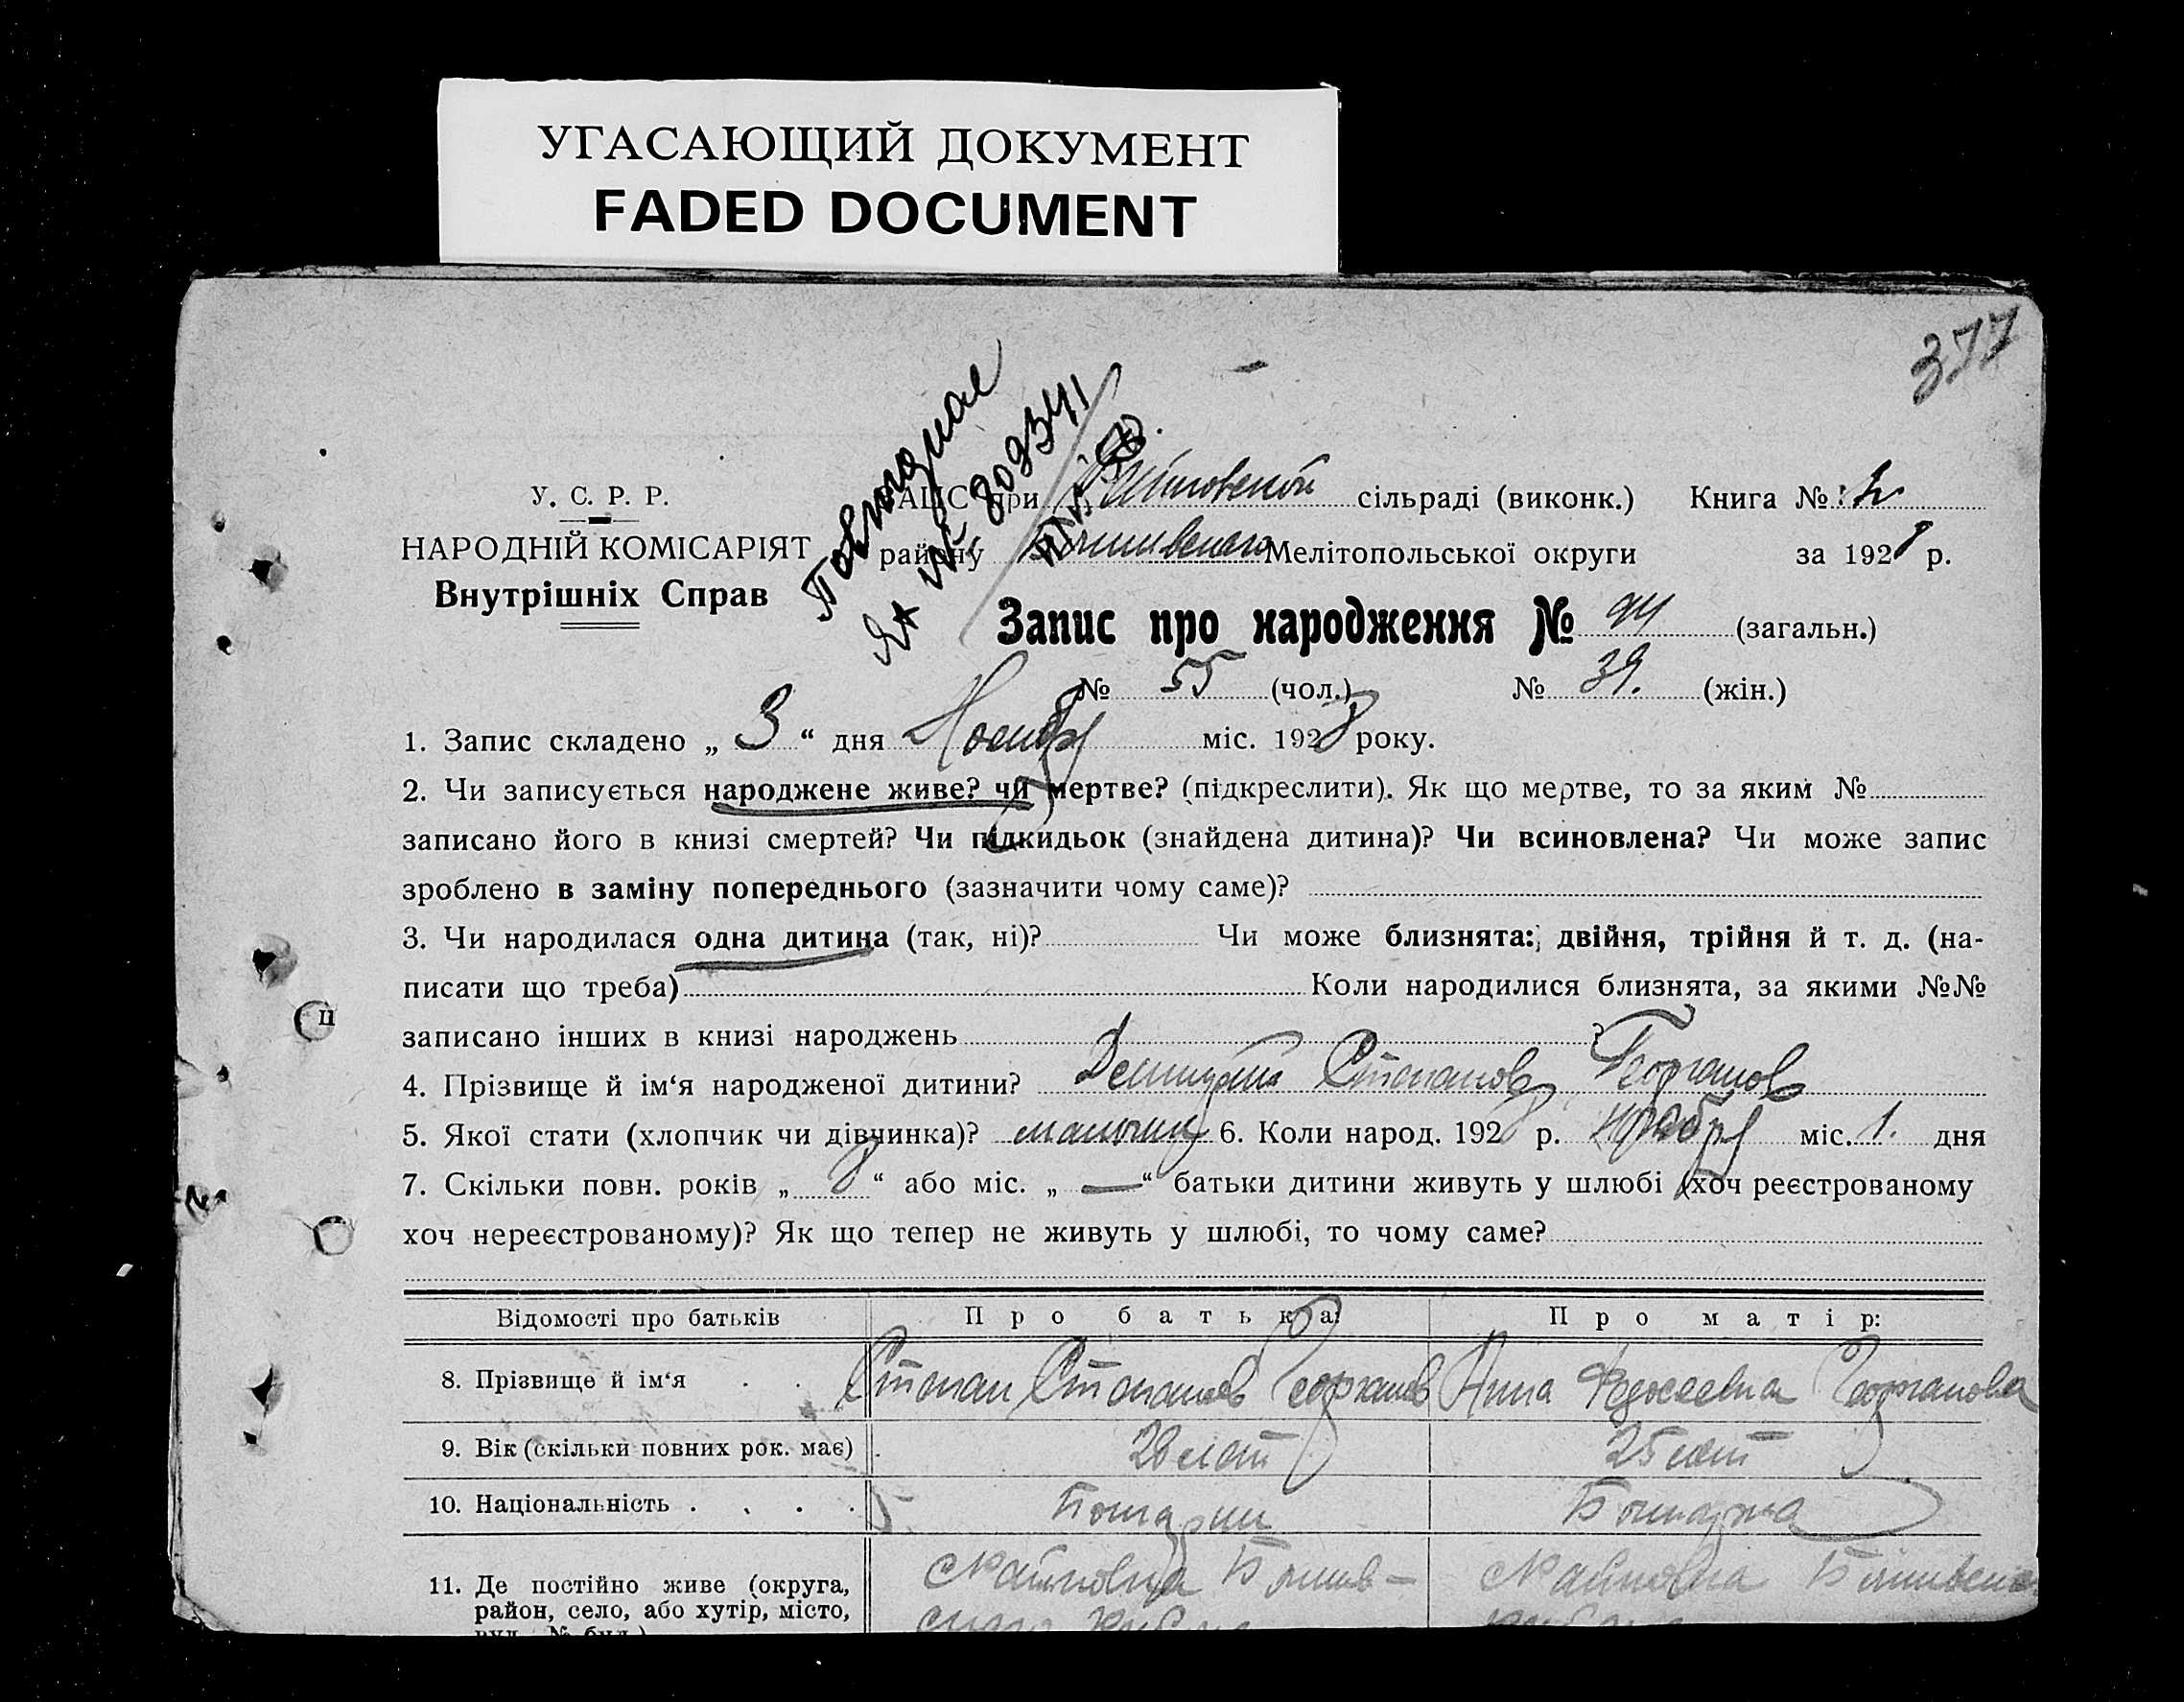 УГАСАЮЩИЙ ДОКУМЕНТ
FADED DOCUMENT
377
Повторное
ЯА № 809341
У. С. Р. Р.
НАРОДНІЙ КОМІСАРІЯТ
Внутрішніх Справ
при сільраді (виконк.) Книга №
району Мелітопольської округи за 1928 р.
Запис про народження № 94 (загальн.)
№ 55 (чол.) № 39. (жін.)
1. Запис складено „ 3 “ дня Ноября міс. 1928 року.
2. Чи записується народжене живе? чи мертве? (підкреслити). Як що мертве, то за яким №
записано його в книзі смертей? Чи підкидьок (знайдена дитина)? Чи всиновлена? Чи може запис
зроблено в заміну попереднього (зазначити чому саме)?
3. Чи народилася одна дитина (так, ні)? Чи може близнята: двійня, трійня й т. д. (на-
писати що треба) Коли народилися близнята, за якими №№
записано інших в книзі народжень ?
4. Прізвище й ім‘я народженої дитини? Степанов
5. Якої стати (хлопчик чи дівчинка)? мальчик 6. Коли народ. 1928 р. ноября міс. 1. дня
7. Скільки повн. років „ 8 “ або міс. „ — “ батьки дитини живуть у шлюбі (хоч реєстрованому
хоч нереєстрованому)? Як що тепер не живуть у шлюбі, то чому саме?
Відомості про батьків Про батька: Про матір:
8. Прізвище й ім‘я . . . Степан Степанов Анна Федосеевна
9. Вік (скільки повних рок. має) 28 лет 25 лет
10. Національність . . . . Болгарин Болгарка
11. Де постійно живе (округа,
район, село, або хутір, місто,
вул., № буд.)